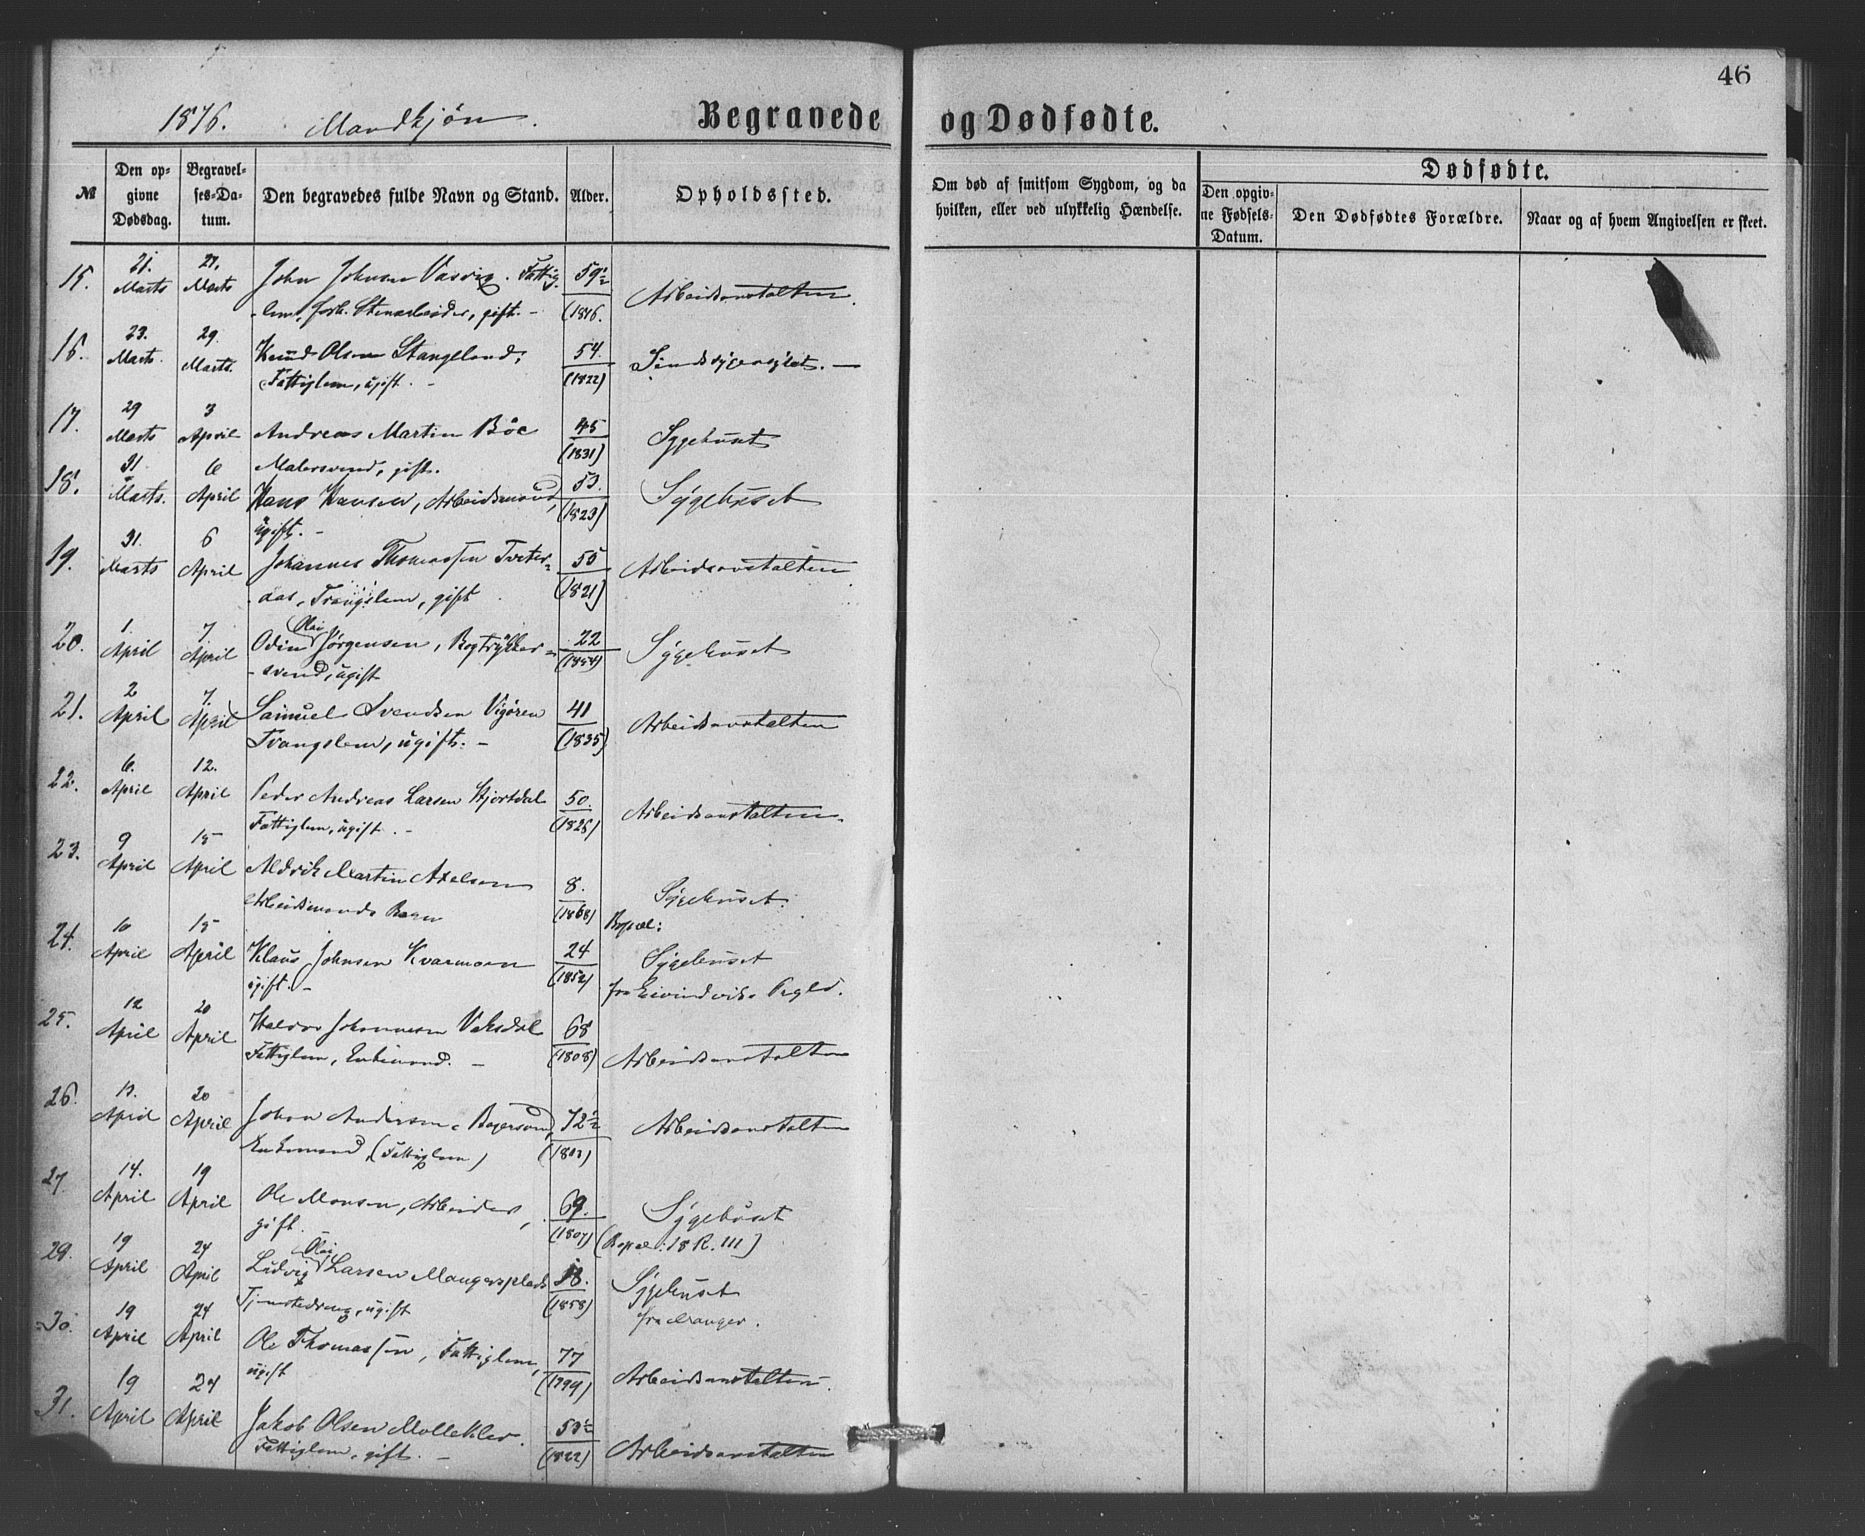 46
1876. Mandkjøn. Begravede og Dødfødte.
№ Den opgivne Dødsdag. Begravelses-Datum. Den begravedes fulde Navn og Stand. Alder. Opholdssted. Om død af smitsom Sygdom, og da hvilken, eller ved ulykkelig Hændelse. Dødfødte. Den opgivne Fødsels-Datum. Den Dødfødtes Forældre. Naar og af hvem Angivelsen er skeet.
15. 21. Marts 27. Marts John Johnsen Vasvig. Fattig- 59½
lem, forh. Stenarbeider, gift. - (1816. Arbeidsanstalten.
16. 23. Marts. 29. Marts. Knud Olsen Stangeland, 54. Sindsygeasylet. -
Fattiglem, ugift. - (1822)
17. 29 Marts 3 April Andreas Martin Böe 45 Sygehuset
Malersvend, gift. (1831)
18. 31 Marts. 6 April Hans Hansen, Arbeidsmand, 53. Sygehuset
ugift. - (1823)
19. 31. Marts 6 April Johannes Thomassen Tveter- 55 Arbeidsanstalten
aas, Tvangslem, gift (1821)
20. 1 April 7 April Odin Olai Jørgensen, Bogtrykker- 22 Sygehuset
svend, ugift (1854)
21. 2 April 7. April Samuel Svendsen Vigören 41 Arbeidsanstalten
Tvangslem, ugift. - (1835)
22. 6. April 12. April Peder Andreas Larsen Hjortdal 50. Arbeidsanstalten.
Fattiglem, ugift. - (1826)
23. 9 April 15 April Aldrik Martin Axelsen 8. Sygehuset.
Arbeidsmands Barn (1868) Bopæl:
24. 10 April 15 April Klaus Johnsen Kvarmoen 24 Sygehuset
ugift. - (1852) fra Eivindvik Prgld.
25. 12 April 20 April Haldor Johannesen Vaksdal 68
Fattiglem, Enkemand. - (1808) Arbeidsanstalten
26. 13. April 20 April Johan Andersen, 72½ Arbeidsanstalten
Enkemand, (Fattiglem) (1803)
27 14. April 19 April Ole Monsen, Arbeider, 69. Sygehuset
gift. (1807) (Bopæl: 18 R. III)
29. 19 April 24 April Ludvig Olai Larsen Mangersplads 18. Sygehuset
Tjenestedreng, ugift (1858) fra Manger.
30. 19 April 24 April Ole Thomassen, Fattiglem, 77
ugift (1799) Arbeidsanstalten.
31. 19 April 24 April Jakob Olsen 53½
Fattiglem, gift. - (1822) Arbeidsanstalten